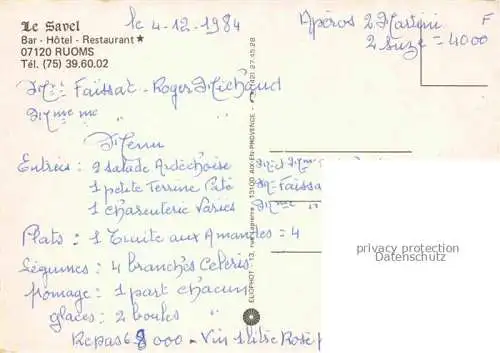 Le Savel
Bar - Hôtel - Restaurant ★
07120 RUOMS
Tél. (75) 39.60.02
le 4-12-1984
Apéros 2 Martini F
2 Suze = 4000
Mr Faissat - Roger Michaud
Mme
Menu
Entrées : 2 salade Ardéchoise
1 petite Terrine Paté
1 charcuterie Variés
Plats : 1 Truite aux Amandes = 4
Légumes : 4 branches Celeris
fromage : 1 part chacun
glaces : 2 boules
Repas 68 000 - Vin 1 litre Rosé
13100 AIX-EN-PROVENCE (42) 27.45.28
Mr et Mme
Mr Faissat
Mme
privacy protection
Datenschutz